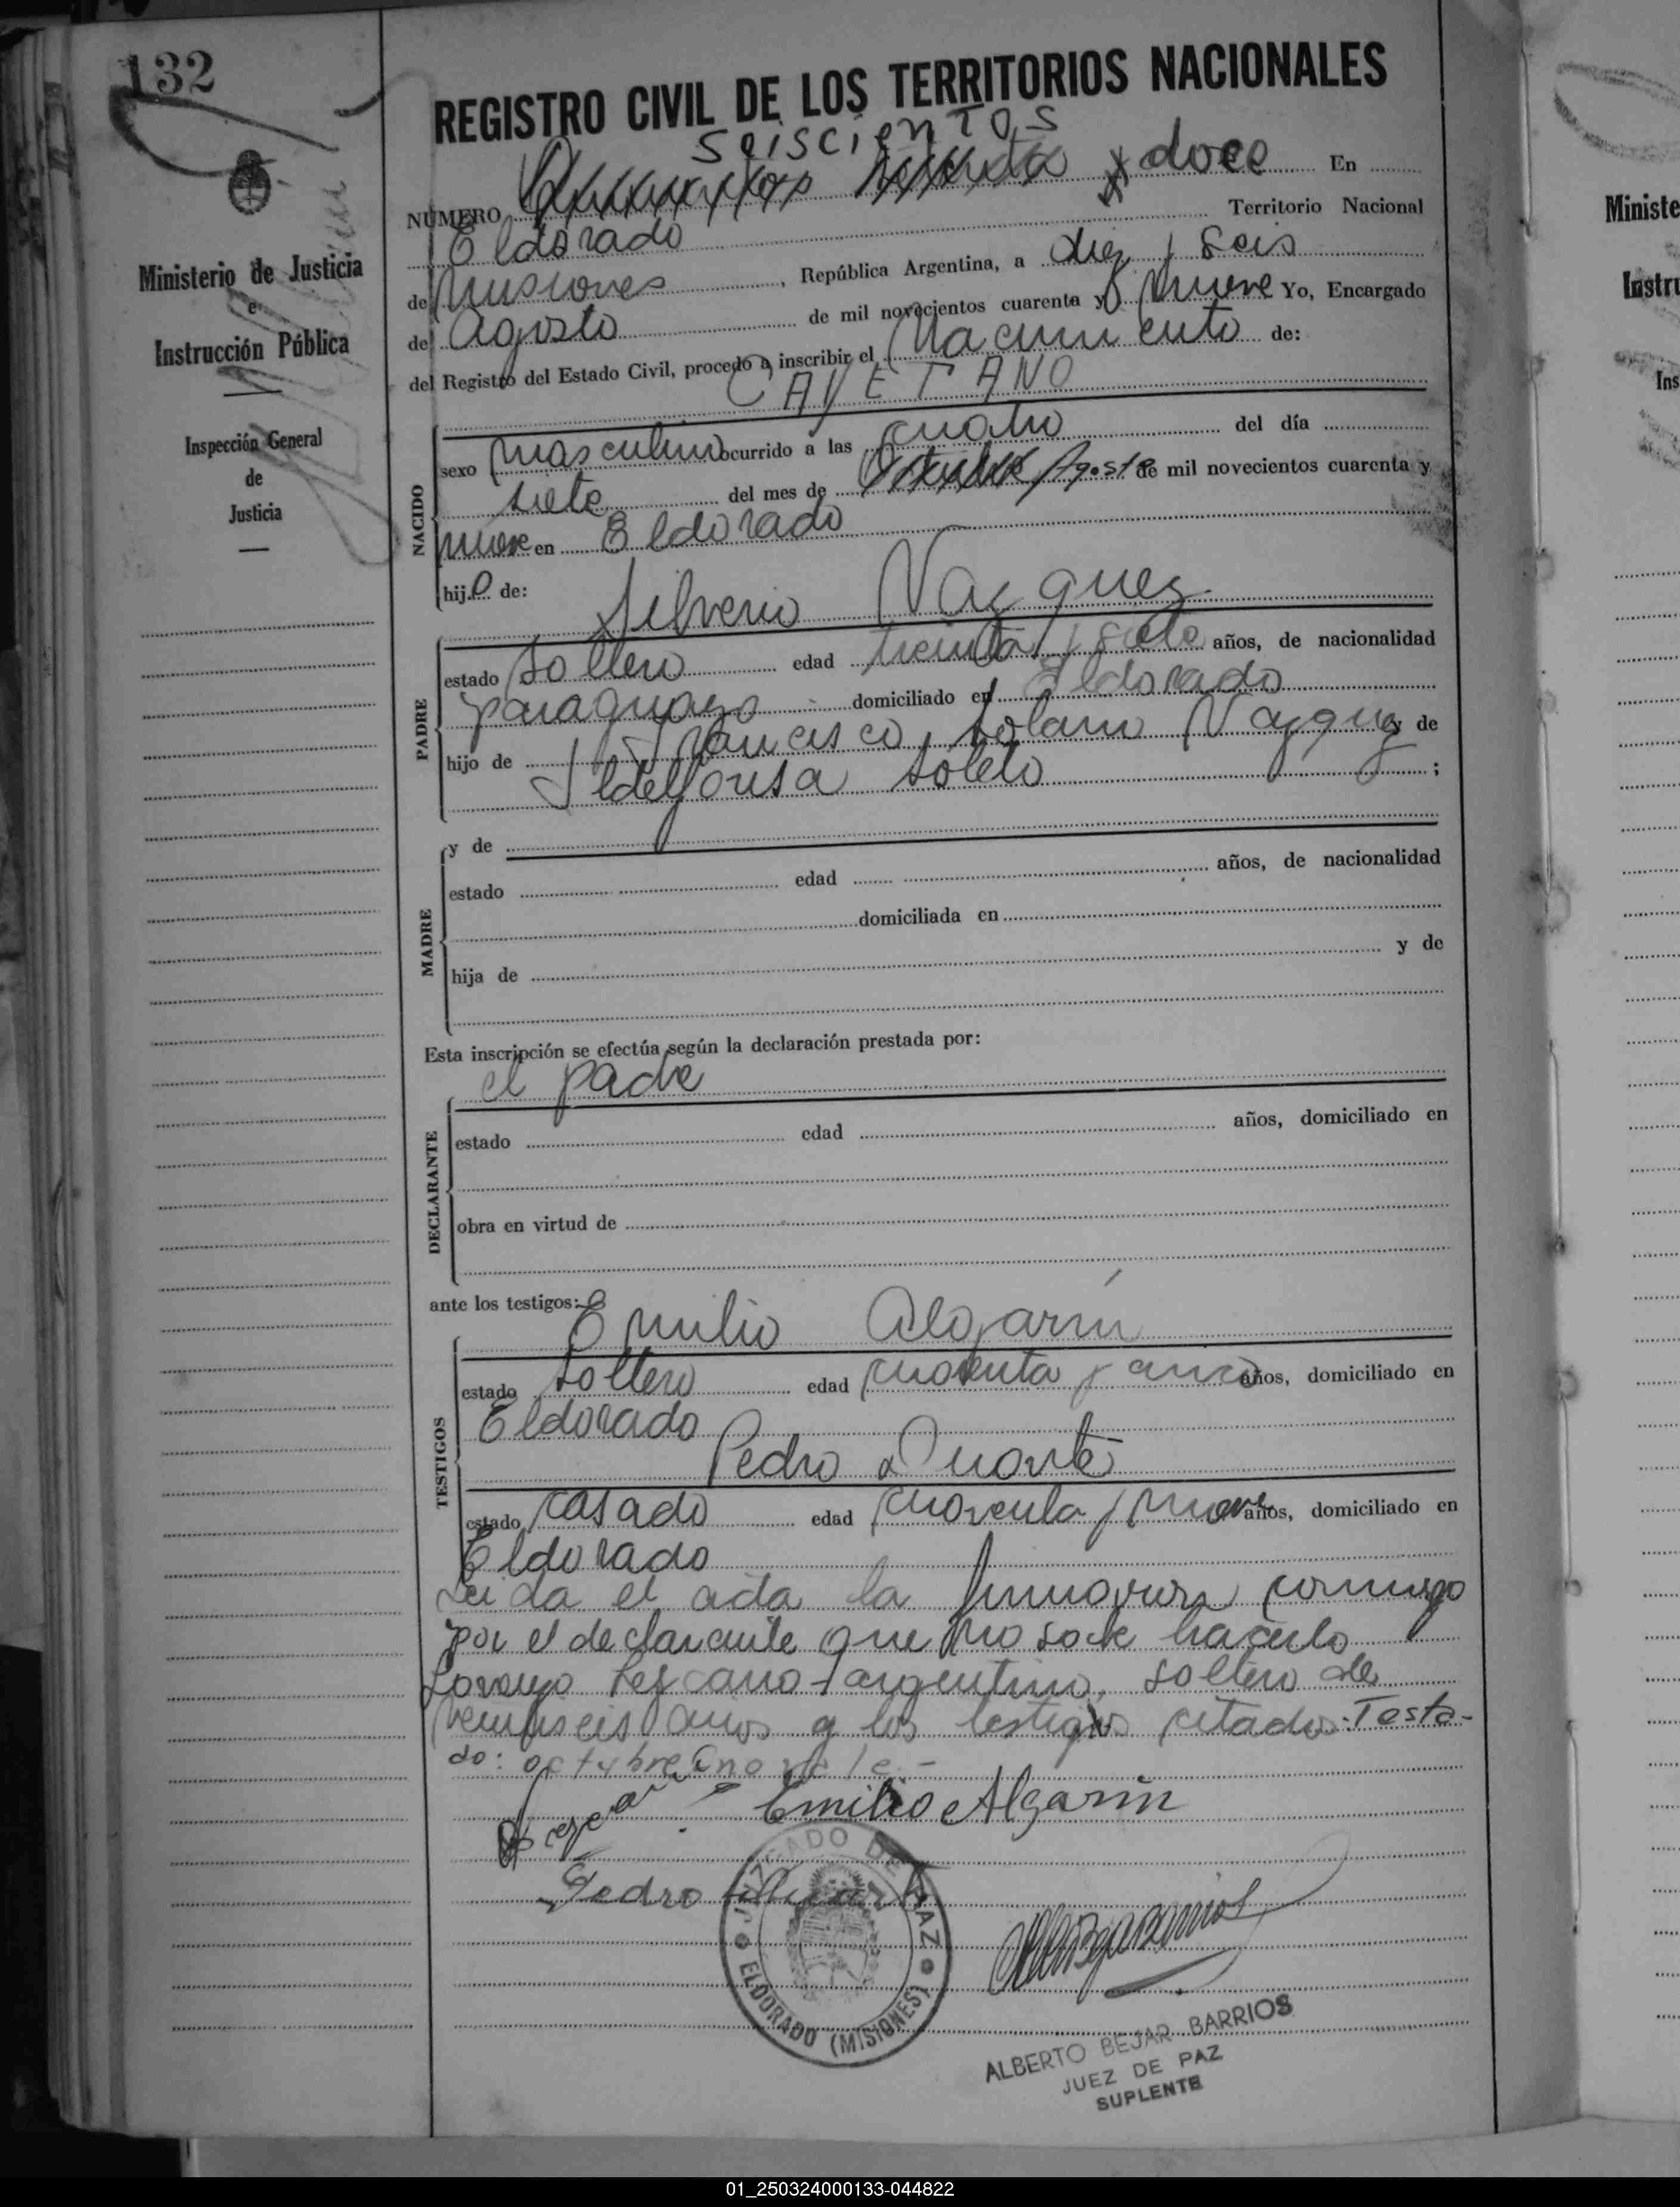 132
REGISTRO CIVIL DE LOS TERRITORIOS NACIONALES
Ministerio de Justicia
e
Instrucción Pública
Inspección General
de
Justicia
seiscientos
NUMERO doce En
Eldorado Territorio Nacional
de Misiones, República Argentina, a diez y seis
de Agosto de mil novecientos cuarenta y nueve Yo, Encargado
del Registro del Estado Civil, procedo a inscribir el Nacimiento de:
CAYETANO
NACIDO
sexo masculino ocurrido a las cuatro del día
siete del mes de Octubre Agosto de mil novecientos cuarenta y
nueve en Eldorado
hijo de:
Silverio Vazquez
PADRE
estado soltero edad treinta y siete años, de nacionalidad
paraguayo domiciliado en Eldorado
hijo de Francisco Solano Vazquez y de
Ildelfonsa Sotelo ;
MADRE
y de
estado edad años, de nacionalidad
domiciliada en
hija de y de
Esta inscripción se efectúa según la declaración prestada por:
el padre
DECLARANTE
estado edad años, domiciliado en
obra en virtud de
ante los testigos:
Emilio Algarín
TESTIGOS
estado soltero edad cuarenta y cinco años, domiciliado en
Eldorado
Pedro Duarte
estado casado edad cuarenta y nueve años, domiciliado en
Eldorado
Leida el acta la firmaron conmigo
por el declarante que no sabe hacerlo
Lezcano argentino, soltero de
veintiseis años y los testigos citados. Testa-
do: octubre no vale.-
Emilio Algarin
Pedro Duarte
JUZGADO DE PAZ
ELDORADO (MISIONES)
ALBERTO BEJAR BARRIOS
JUEZ DE PAZ
SUPLENTE
Ministe
Instru
Ins
01_250324000133-044822